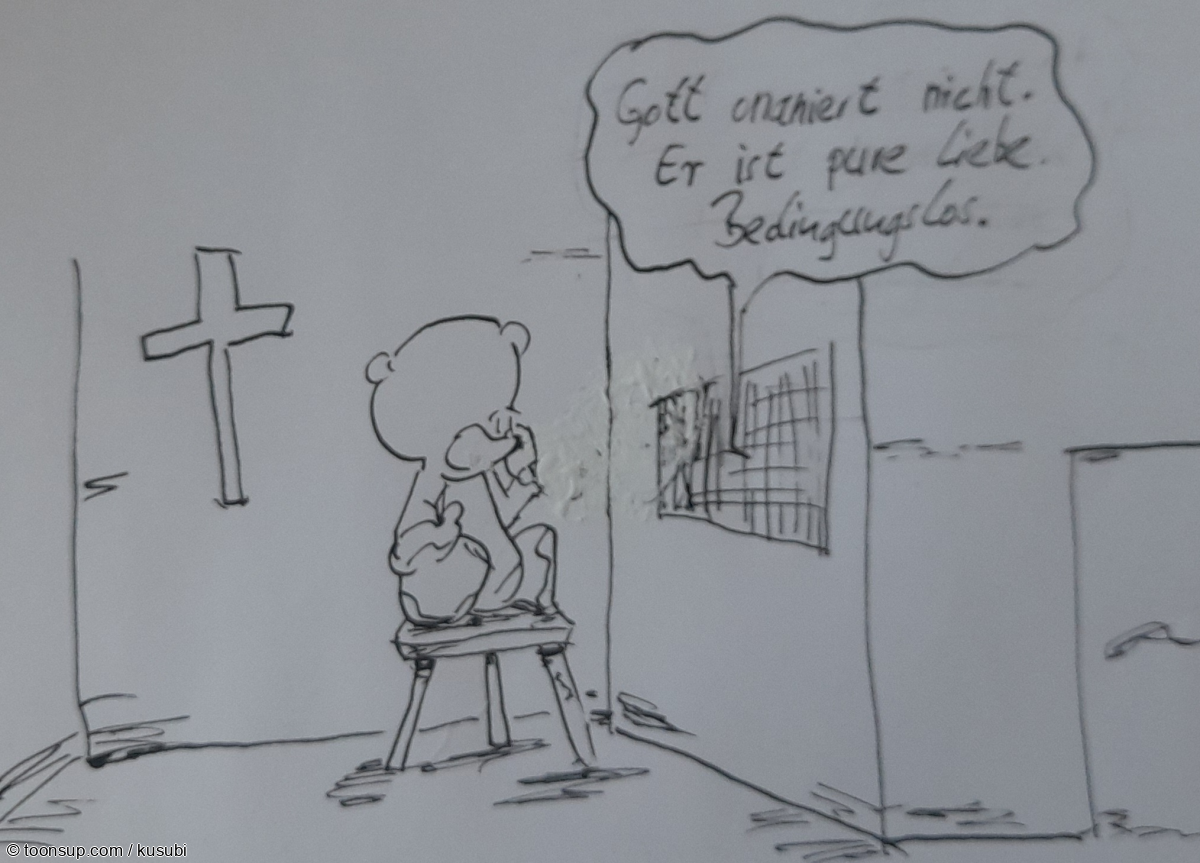 Gott onaniert nicht.
Er ist pure Liebe.
Bedingungslos.
© toonsup.com / kusubi